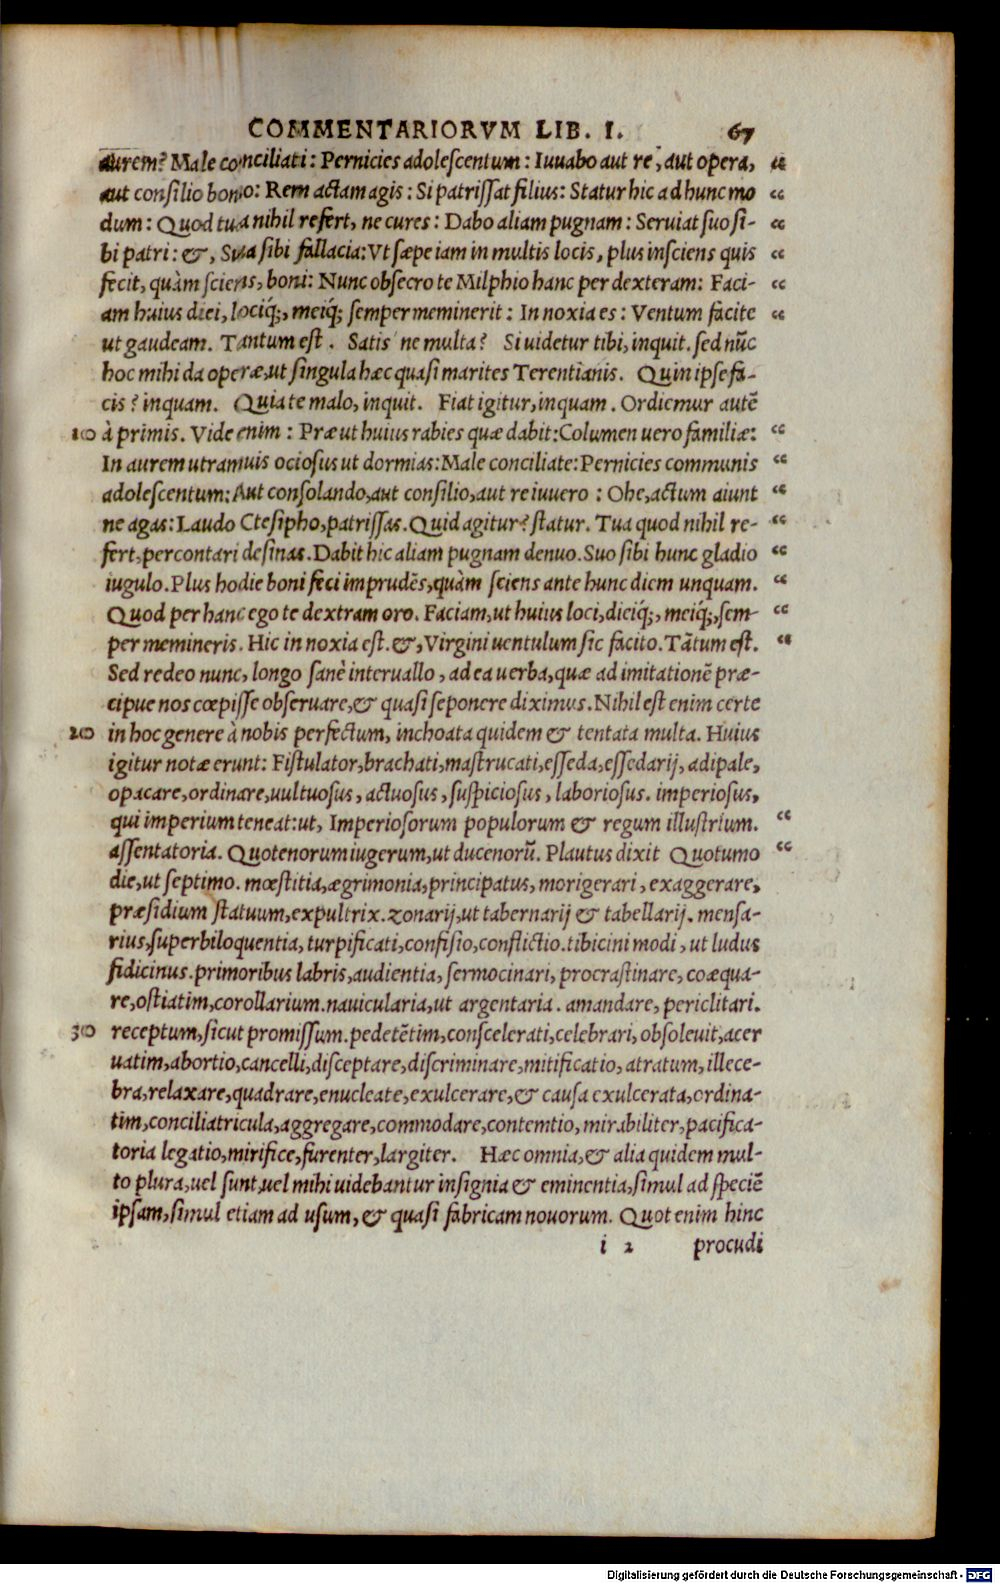 COMMENTARIORVM LIB. I. 67
aurem? Male conciliati: Pernicies adolescentum: Iuuabo aut re, aut opera, “
aut consilio bono: Rem actam agis: Si patrissat filius: Statur hic ad hunc mo “
dum: Quod tua nihil refert, ne cures: Dabo aliam pugnam: Seruiat suo si- “
bi patri: &, Sua sibi fallacia: Vt sæpe iam in multis locis, plus insciens quis “
fecit, quàm sciens, boni: Nunc obsecro te Milphio hanc per dexteram: Faci- “
am huius diei, lociq́;, meiq́; semper meminerit: In noxia es: Ventum facite “
ut gaudeam. Tantum est. Satis ne multa? Si uidetur tibi, inquit. sed nũc
hoc mihi da operæ, ut singula hæc quasi marites Terentianis. Quin ipse fa-
cis? inquam. Quia te malo, inquit. Fiat igitur, inquam. Ordiemur autẽ
10 à primis. Vide enim: Præut huius rabies quæ dabit: Columen uero familiæ: “
In aurem utramuis ociosus ut dormias: Male conciliate: Pernicies communis “
adolescentum: Aut consolando, aut consilio, aut re iuuero: Ohe, actum aiunt “
ne agas: Laudo Ctesipho, patrissas. Quid agitur? statur. Tua quod nihil re- “
fert, percontari desinas. Dabit hic aliam pugnam denuo. Suo sibi hunc gladio “
iugulo. Plus hodie boni feci imprudẽs, quàm sciens ante hunc diem unquam. “
Quod per hanc ego te dextram oro. Faciam, ut huius loci, dieiq́;, meiq́;, sem- “
per memineris. Hic in noxia est. &, Virgini uentulum sic facito. Tãtum est. “
Sed redeo nunc, longo sanè interuallo, ad ea uerba, quæ ad imitationẽ præ-
cipue nos cœpisse obseruare, & quasi seponere diximus. Nihil est enim certe
20 in hoc genere à nobis perfectum, inchoata quidem & tentata multa. Huius
igitur notæ erunt: Fistulator, brachati, mastrucati, esseda, essedarij, adipale,
opacare, ordinare, uultuosus, actuosus, suspiciosus, laboriosus. imperiosus,
qui imperium teneat: ut, Imperiosorum populorum & regum illustrium. “
assentatoria. Quotenorum iugerum, ut ducenorũ. Plautus dixit Quotumo “
die, ut septimo. mœstitia, ægrimonia, principatus, morigerari, exaggerare,
præsidium statuum, expultrix. zonarij, ut tabernarij & tabellarij. mensa-
rius, superbiloquentia, turpificati, confisio, conflictio. tibicini modi, ut ludus
fidicinus. primoribus labris, audientia, sermocinari, procrastinare, coæqua-
re, ostiatim, corollarium. nauicularia, ut argentaria. amandare, periclitari.
30 receptum, sicut promissum. pedetẽtim, conscelerati, celebrari, obsoleuit, acer
uatim, abortio, cancelli, disceptare, discriminare, mitificatio, atratum, illece-
bra, relaxare, quadrare, enucleate, exulcerare, & causa exulcerata, ordina-
tim, conciliatricula, aggregare, commodare, contemtio, mirabiliter, pacifica-
toria legatio, mirifice, furenter, largiter. Hæc omnia, & alia quidem mul-
to plura, uel sunt, uel mihi uidebantur insignia & eminentia, simul ad speciẽ
ipsam, simul etiam ad usum, & quasi fabricam nouorum. Quot enim hinc
i 2 procudi
Digitalisierung gefördert durch die Deutsche Forschungsgemeinschaft - DFG